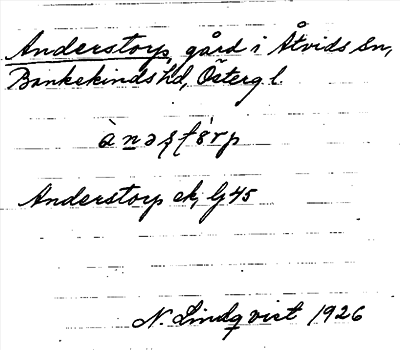 Anderstorp, gård i Åtvids sn,
Bankekinds hd, Östergl.
Anderstorp ek, Gj 45
N. Lindqvist 1926